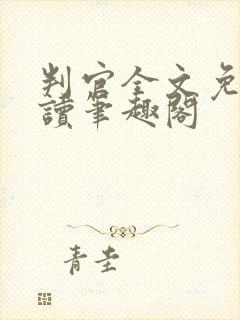 判官全文免
讀筆趣閣
青圭